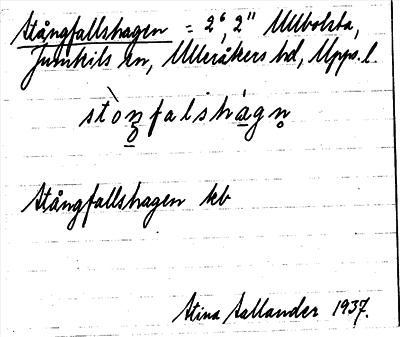 Stångfallshagen = 2⁶, 2¹¹ Ullbolsta,
Jumkils sn, Ulleråkers hd, Upps. l.
stòŋfalshágn̥
Stångfallshagen kb
Stina Sallander 1937.